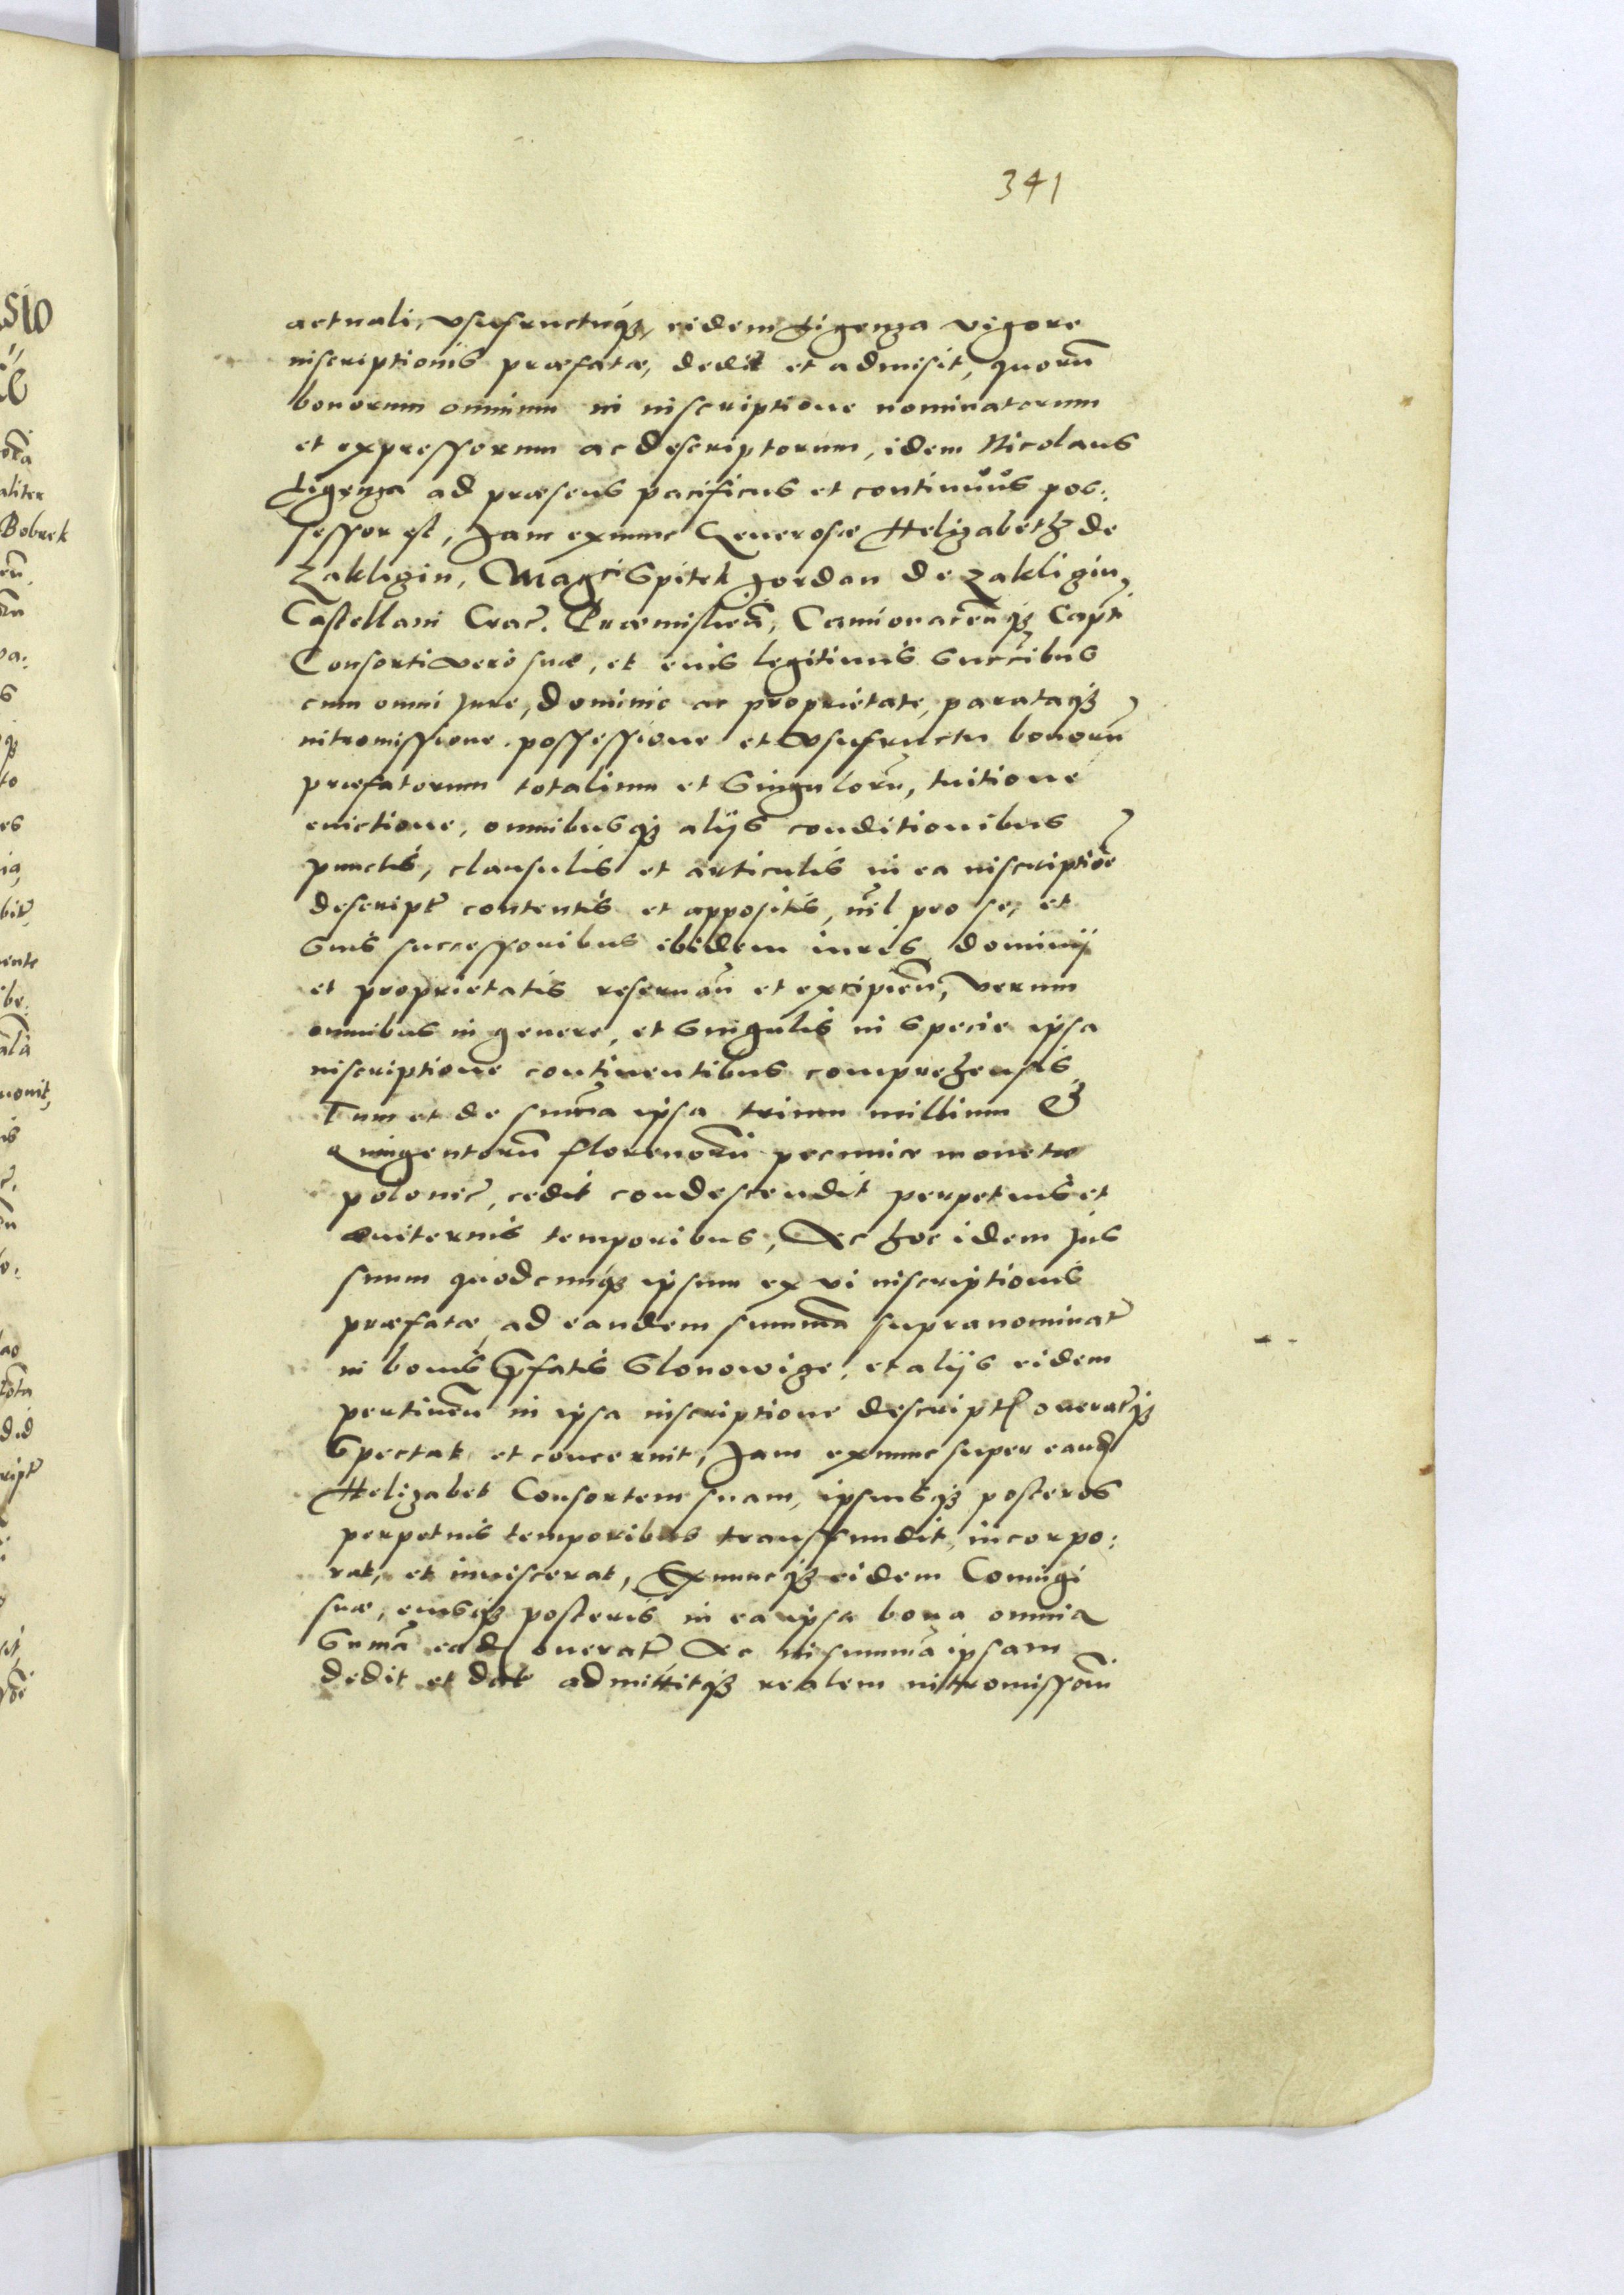 341
actuali, vsufructuq(ue), eidem Ligenza vigore
inscriptionis præfatæ, dedit et admisit, quorũ
bonorum omnium in inscriptione nominatorum
et expressorum ac descriptorum, idem Nicolaus
Ligenza ad præsens pacificus et continuus pos:
sessor est, Jam exnunc Generosæ Helizabeth de
Zakligin, Magci Spitek Jordan de Zakligin,
Castellani Crac. Præmislień, Camionaceńq(ue) Capti
Consorti vero suæ, et eius legitimis succibus
cum omni Jure, dominio ac proprietate, parataq(ue)
intromissione possessione et vsufructu bonorũ
præfatorum totalium et singulorũ, tuitione
euictione, omnibusq(ue) alijs conditionibus
punctis, clausulis et articulis in ea inscriptioe
descript contentis et appositis, nil pro se, et
suis successoribus ibidem iuris dominij
et proprietatis reseruań et excipień, verum
omnibus in genere, et singulis in specie ipsa
inscriptione continentibus comprehensis
Tum et de sum̃a ipsa trium millium &
Quingentorũ florenorũ pecuniæ monetæ
polonic, cedit condescendit perpetuis et
æuiternis temporibus, Ac hoc idem Jus
suum quodcunq(ue) ipsum ex vi inscriptionis
præfatæ, ad eandem summã supranominat
in bonis p̃fatis Slonowige, et alijs eidem
pertineń in ipsa inscriptione descript oneratq(ue)
spectat et concernit, Jam exnunc super eand
Helizabet Consortem suam, ipsiusq(ue) posteros
perpetuis temporibus transfundit, incorpo:
rat, et inuiscerat, Exnuncq(ue) eidem Coniugi
suæ, eiusq(ue) posteris in ea ipsa bona omnia
Sum̃a ead onerat Ac in summã ipsam
dedit et dat admittitq(ue) realem intromissoni